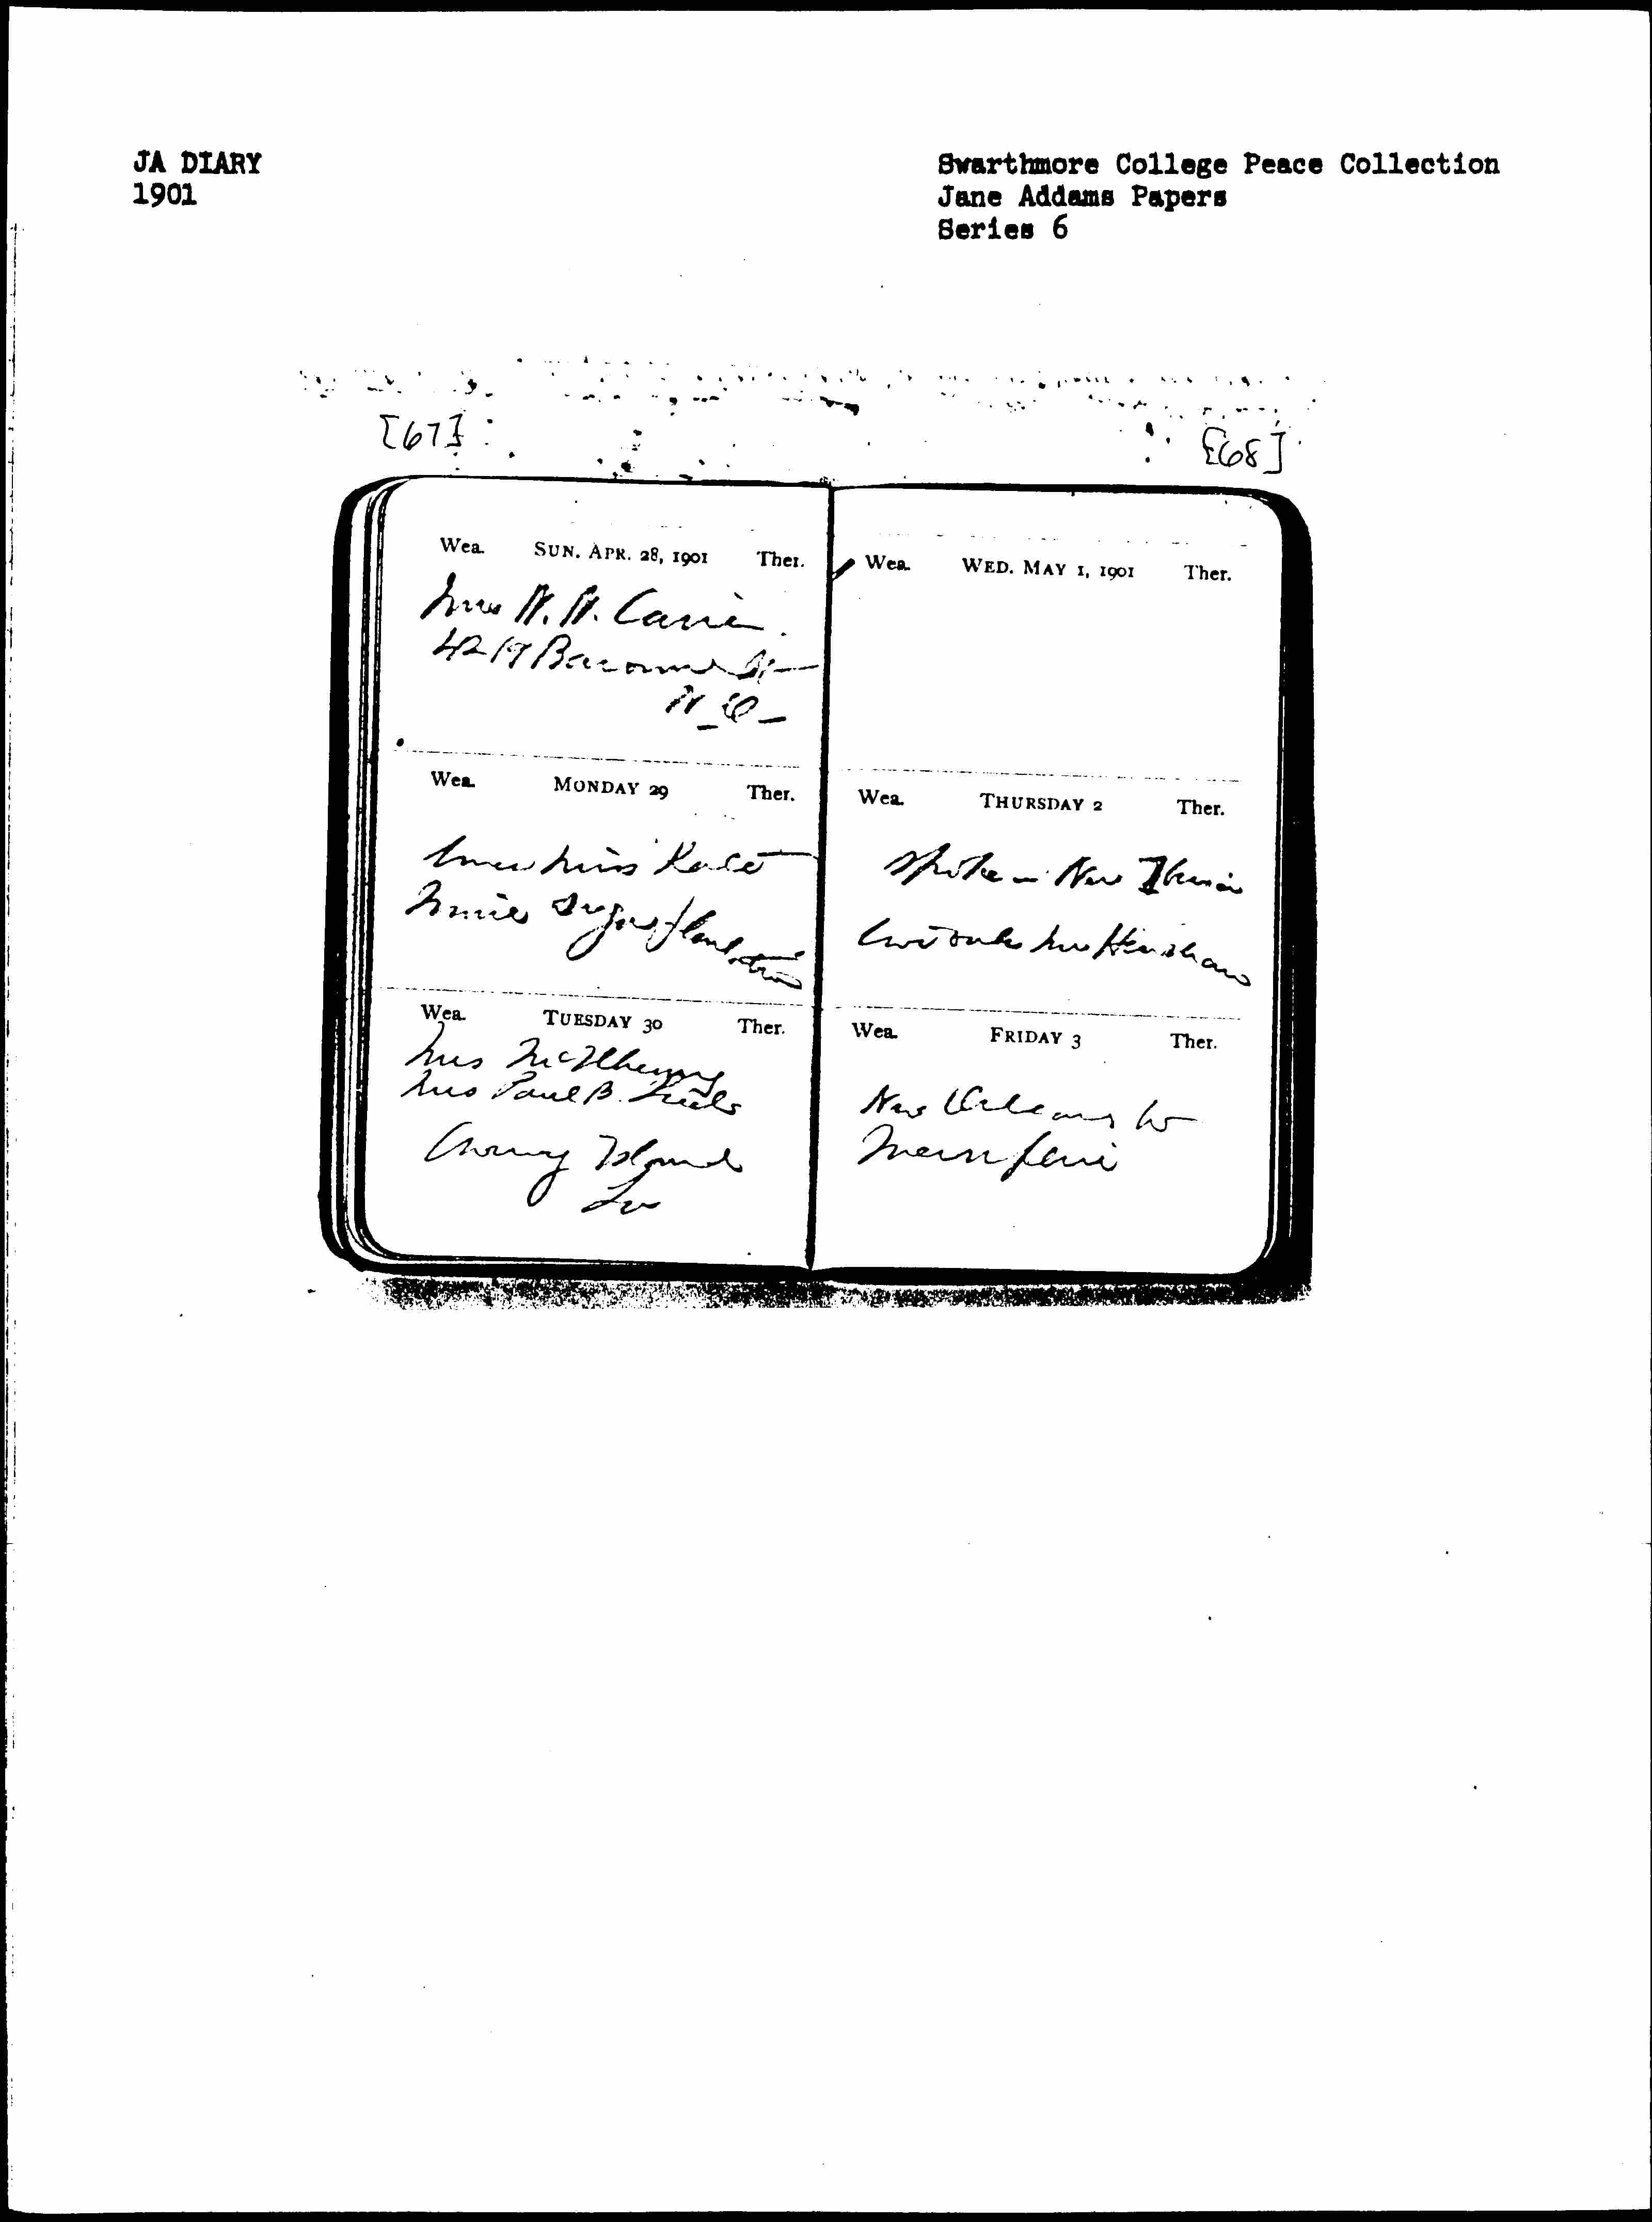 JA DIARY
1901
Swarthmore College Peace Collection
Jane Addams Papers
Series 6
[67]
[68]
Wea. SUN. APR. 28, 1901 Ther.
Mrs N. N. Carrie
4219 Baronne St
N_O_
Wea. MONDAY 29 Ther.
Miss Kate
Minor Sugar plantation
Wea. TUESDAY 30 Ther.
Mrs McIlhenny
Mrs Paul B.
Avery Island
La
Wea. WED. MAY 1, 1901 Ther.
Wea. THURSDAY 2 Ther.
Spoke in New Iberia
Mrs Henshaw
Wea. FRIDAY 3 Ther.
New Orleans to
Memphis